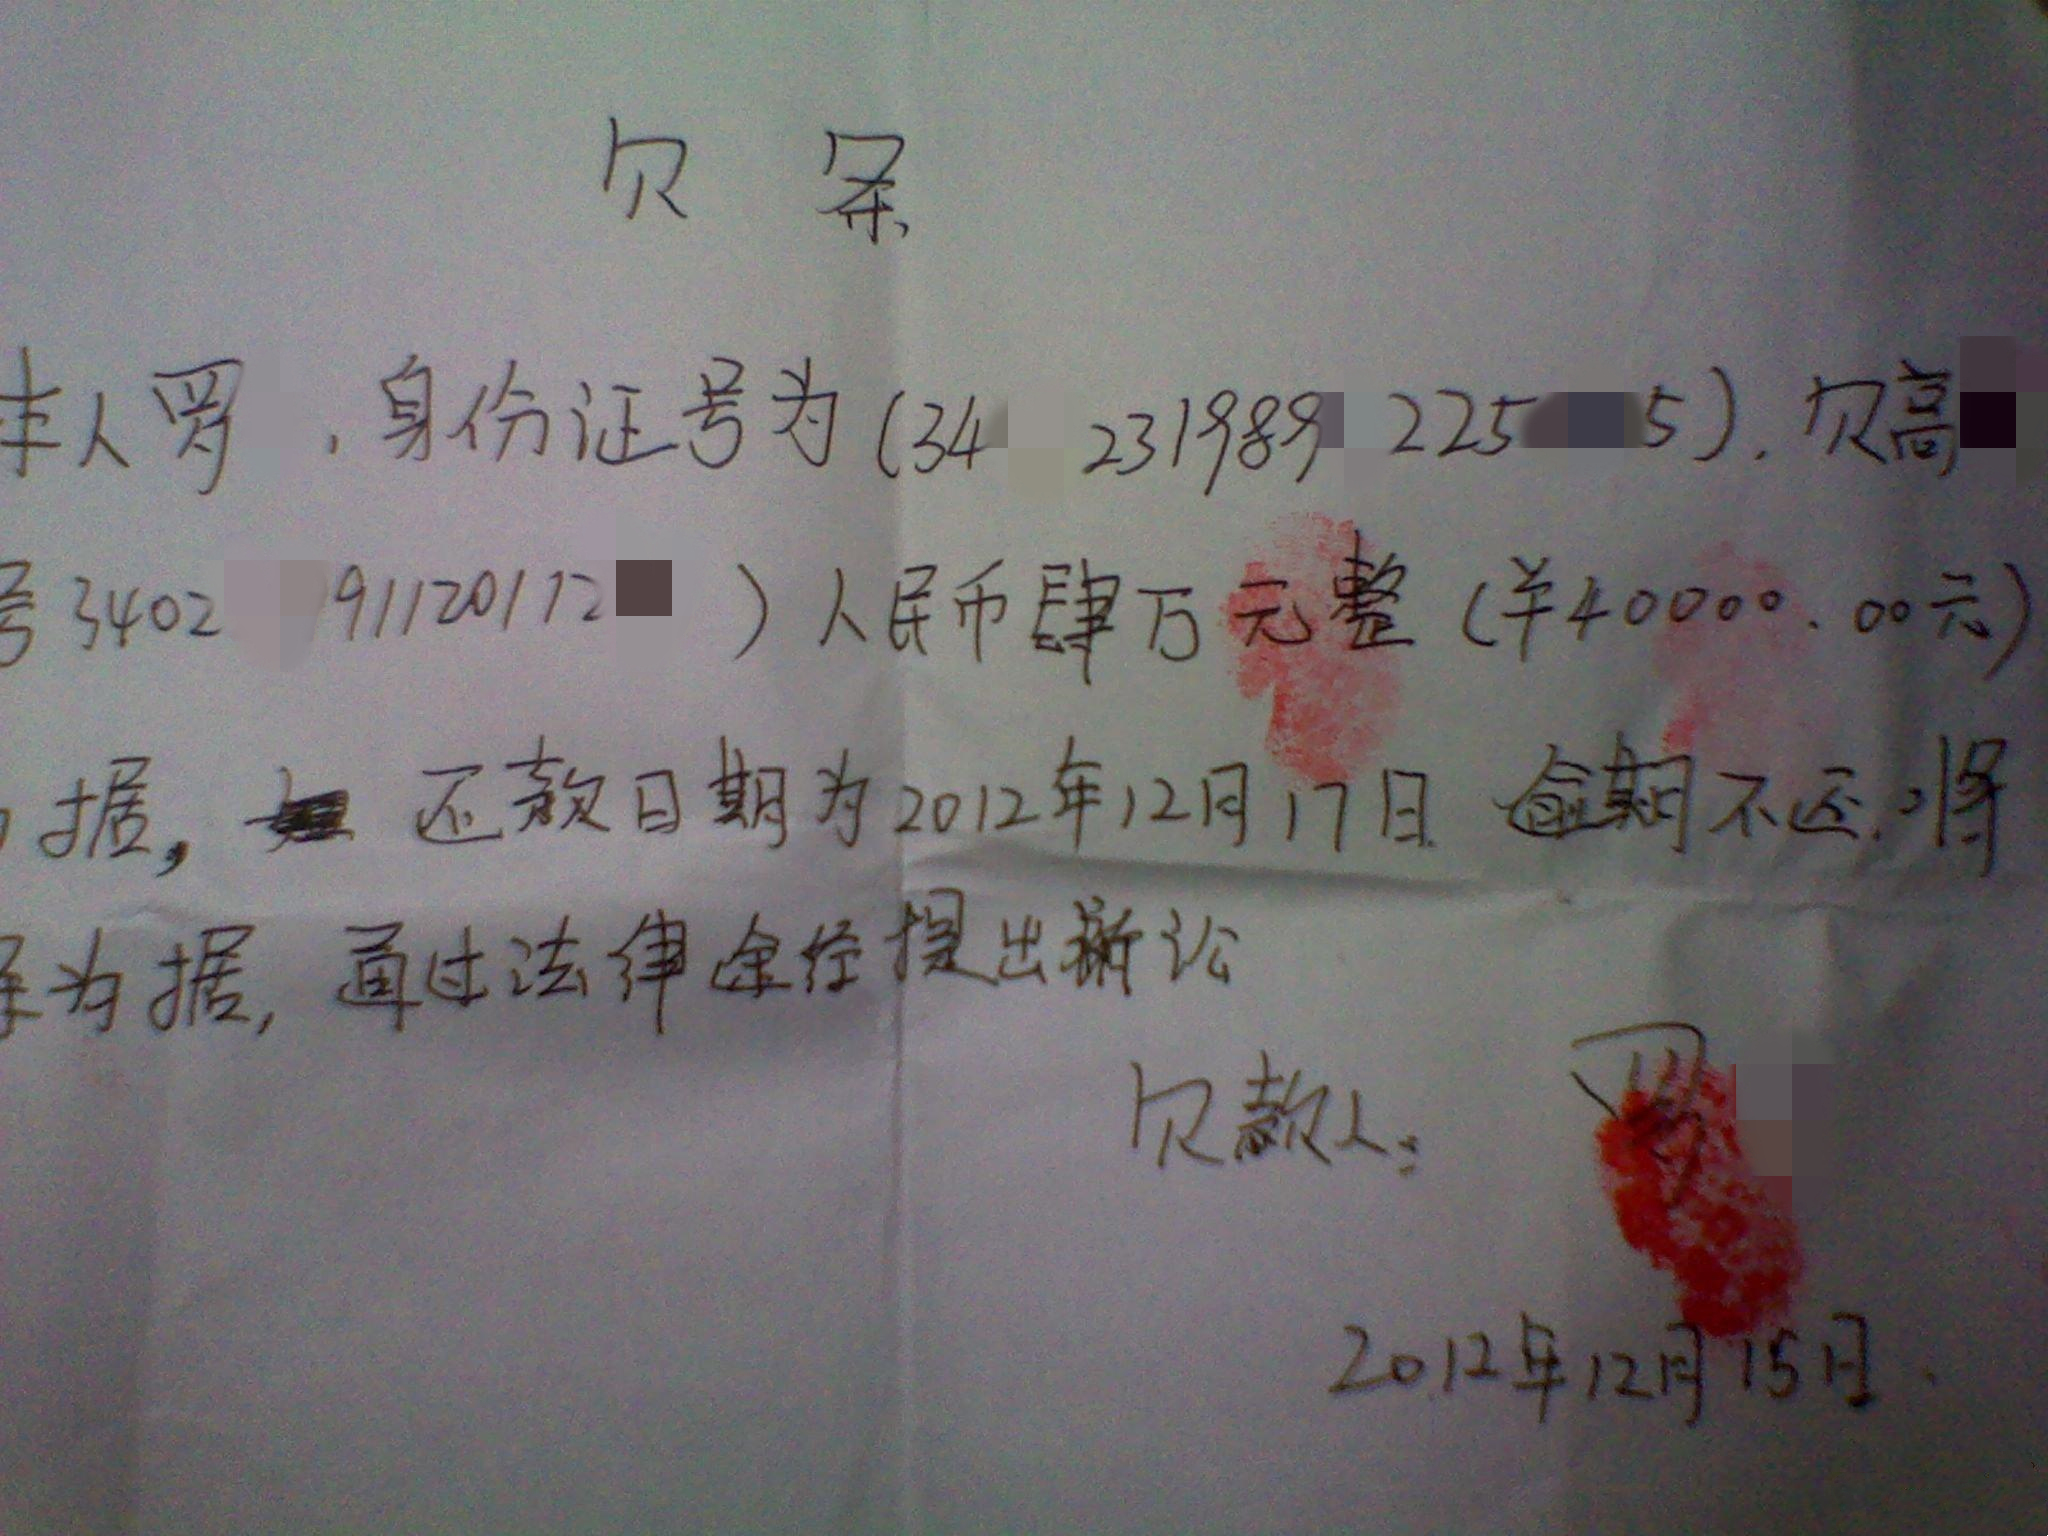 欠条
本人罗，身份证号为(34 231989 225 5).欠高
号3402 91120112 ）人民币肆万元整(￥40000.00元)
据， 还款日期为2012年12月17日 逾期不还.将
为据,通过法律途径提出诉讼
欠款人: 罗
2012年12月15日.